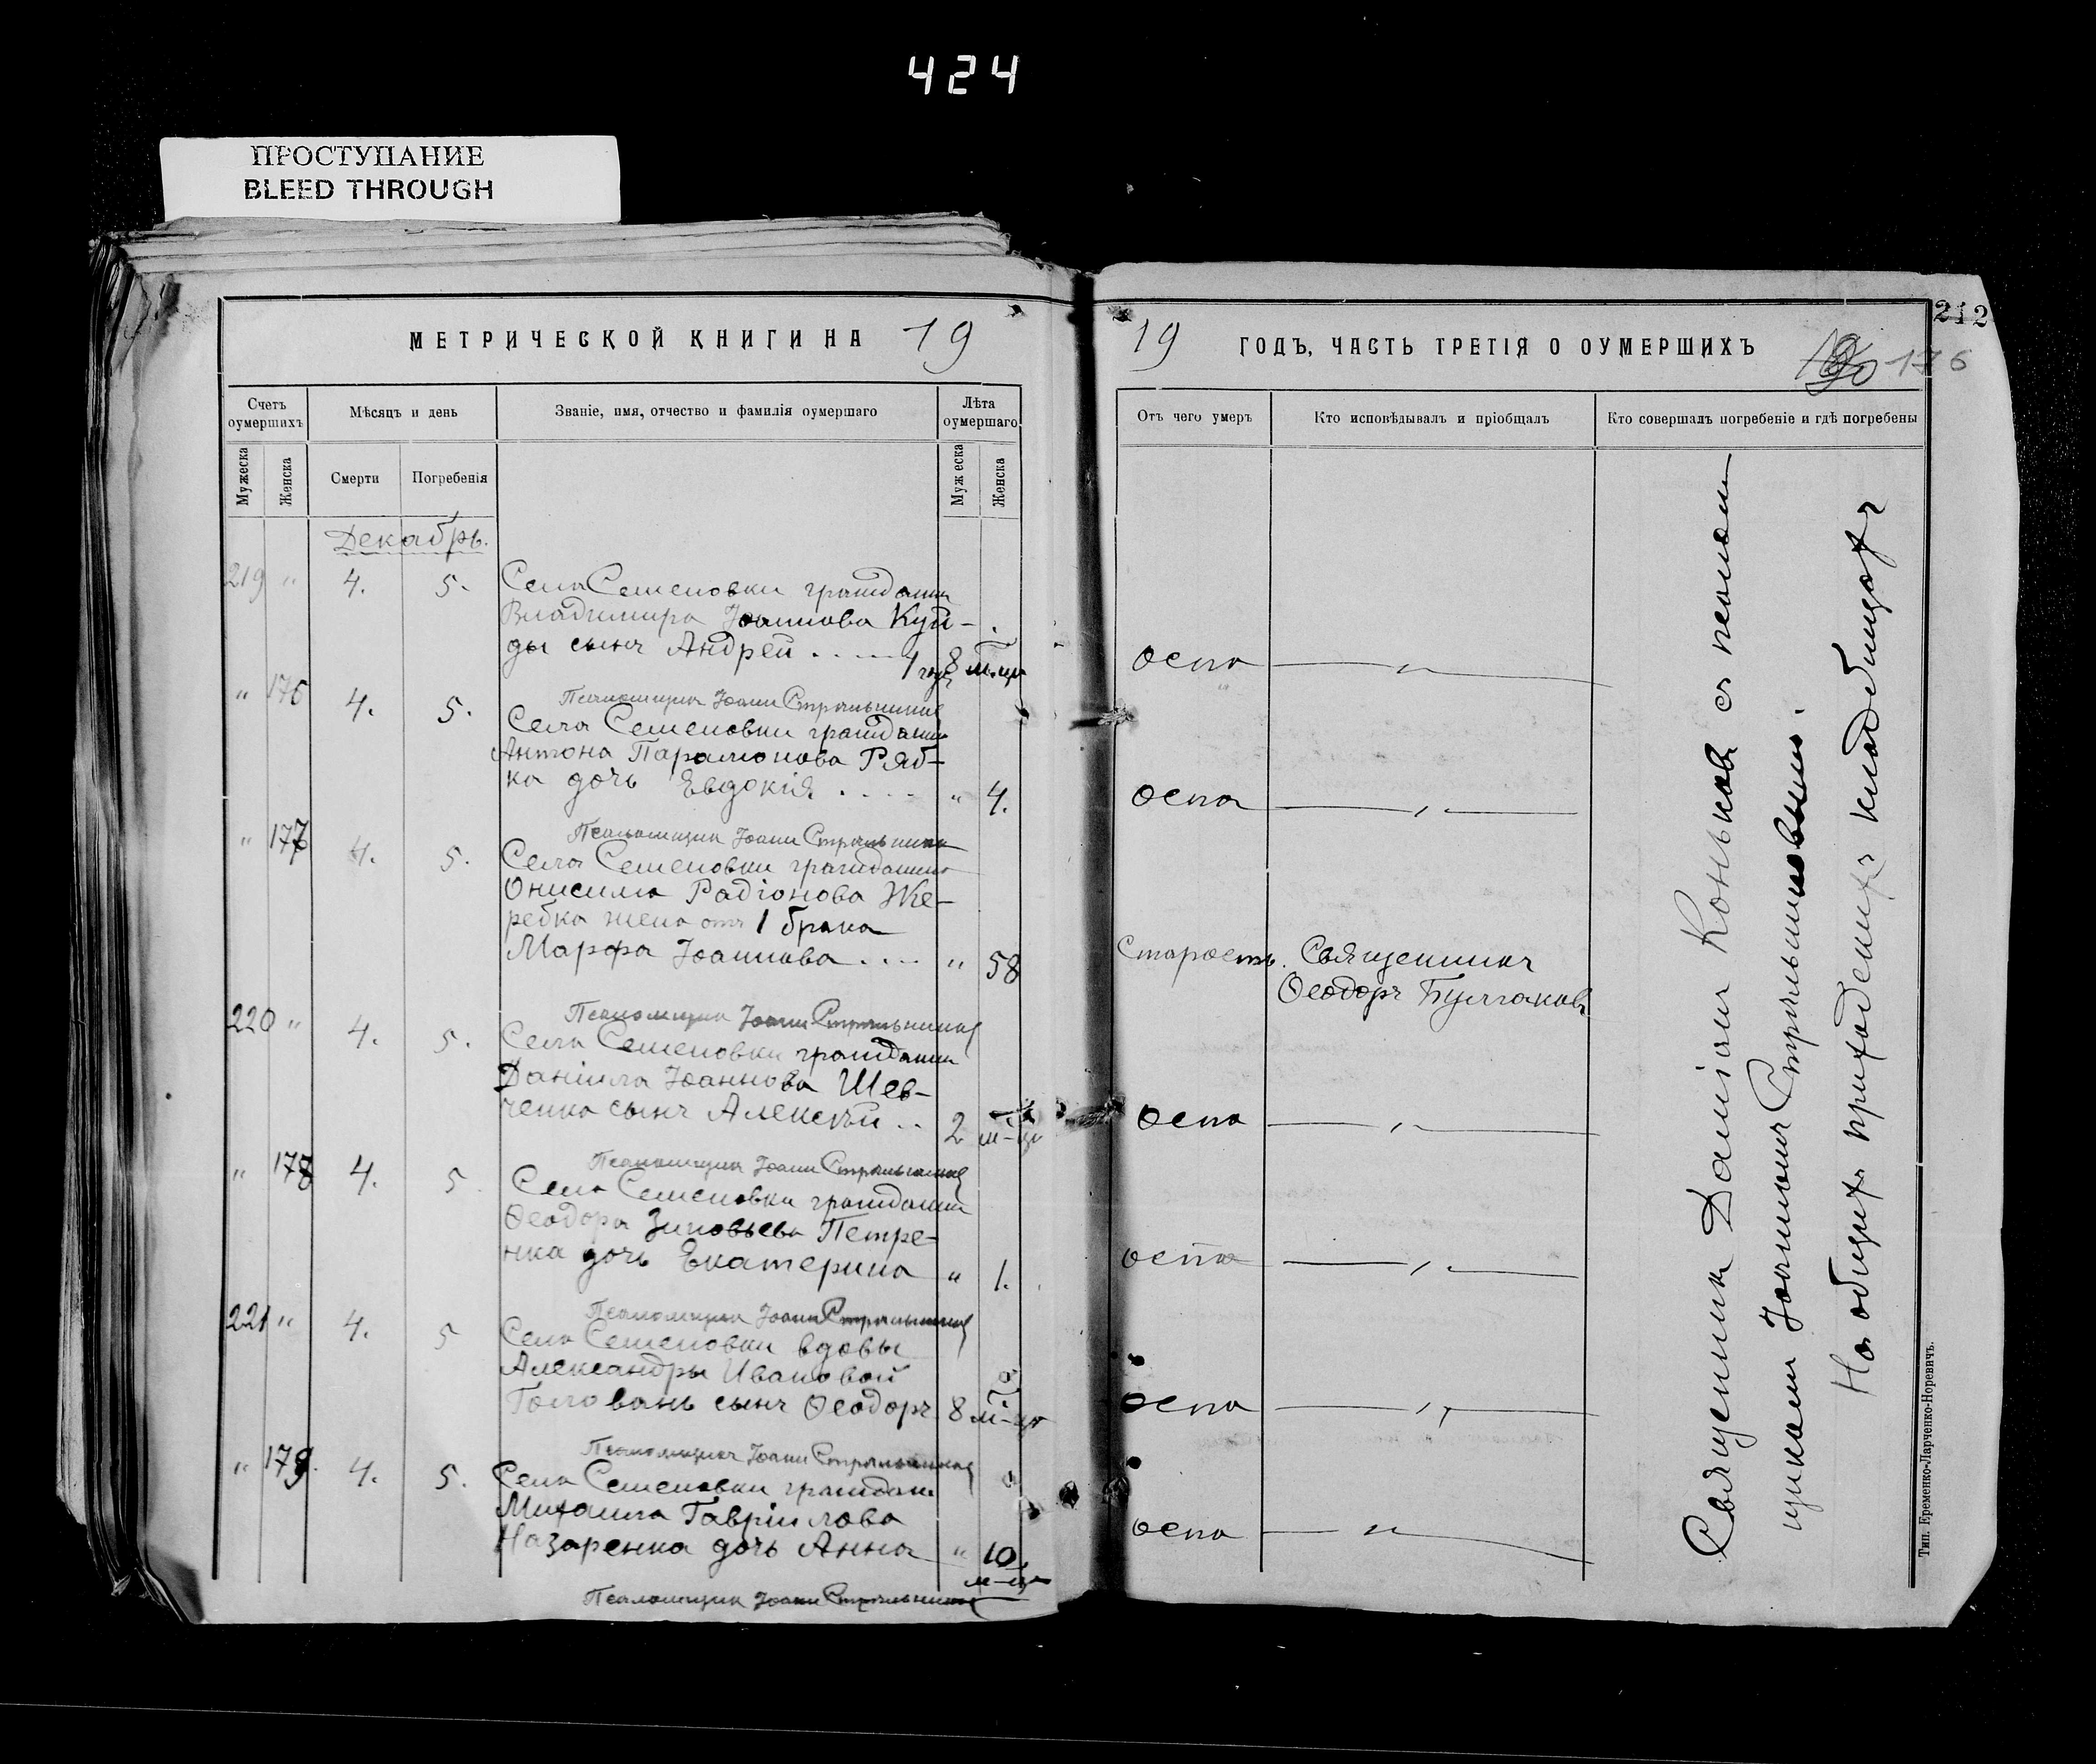 424
ПРОСТУПАНИЕ
BLEED THROUGH
МЕТРИЧЕСКОЙ КНИГИ НА 19
Счетъ оумершихъ
Мѣсяцъ и день
Званіе, имя, отчество и фамилія оумершаго
Лѣта оумершаго
Мужеска
Женска
Смерти
Погребенія
Мужеска
Женска
Декабрь.
219 " 4. 5. Села Семеновки гражданина
Владимира Іоаннова Куй-
ды сынъ Андрей . . . . 1 годъ 8 м-цъ
Псаломщикъ Іоаннъ Стрѣльниковъ
" 176 4. 5. Села Семеновки гражданина
Антона Парамонова Ряб-
ка дочь Евдокія . . . . " 4.
Псаломщикъ Іоаннъ Стрѣльниковъ
" 177 4. 5. Села Семеновки гражданина
Онисима Радіонова Же-
ребка жена отъ 1 брака
Марфа Іоаннова . . . . " 58
Псаломщикъ Іоаннъ Стрѣльниковъ
220 " 4. 5. Села Семеновки гражданина
Даніила Іоаннова Шев-
ченка сынъ Алексѣй . . 2 м-ца
Псаломщикъ Іоаннъ Стрѣльниковъ
" 178 4. 5 Села Семеновки гражданина
Ѳеодора Зиновьева Петре-
нка дочь Екатерина " 1.
Псаломщикъ Іоаннъ Стрѣльниковъ
221 " 4. 5 Села Семеновки вдовы
Александры Ивановой
Головань сынъ Ѳеодоръ 8 м-цъ
Псаломщикъ Іоаннъ Стрѣльниковъ
" 179. 4. 5. Села Семеновки граждан.
Михаила Гавріилова
Назаренка дочь Анна " 10.
м-цъ
Псаломщикъ Іоаннъ Стрѣльниковъ
212
19 ГОДЪ, ЧАСТЬ ТРЕТІЯ О ОУМЕРШИХЪ
176
Отъ чего умеръ
Кто исповѣдывалъ и пріобщалъ
Кто совершалъ погребеніе и гдѣ погребены
оспа — " —
оспа — " —
Старость. Священникъ
Ѳеодоръ Булгаковъ
оспа — " —
оспа — " —
оспа — " —
оспа — " —
Священник Даміан Коньков с псалом
щиком Іоанном Стрѣльниковым.
На общих приходских кладбищах
Тип. Еременко-Ларченко-Норевичъ.